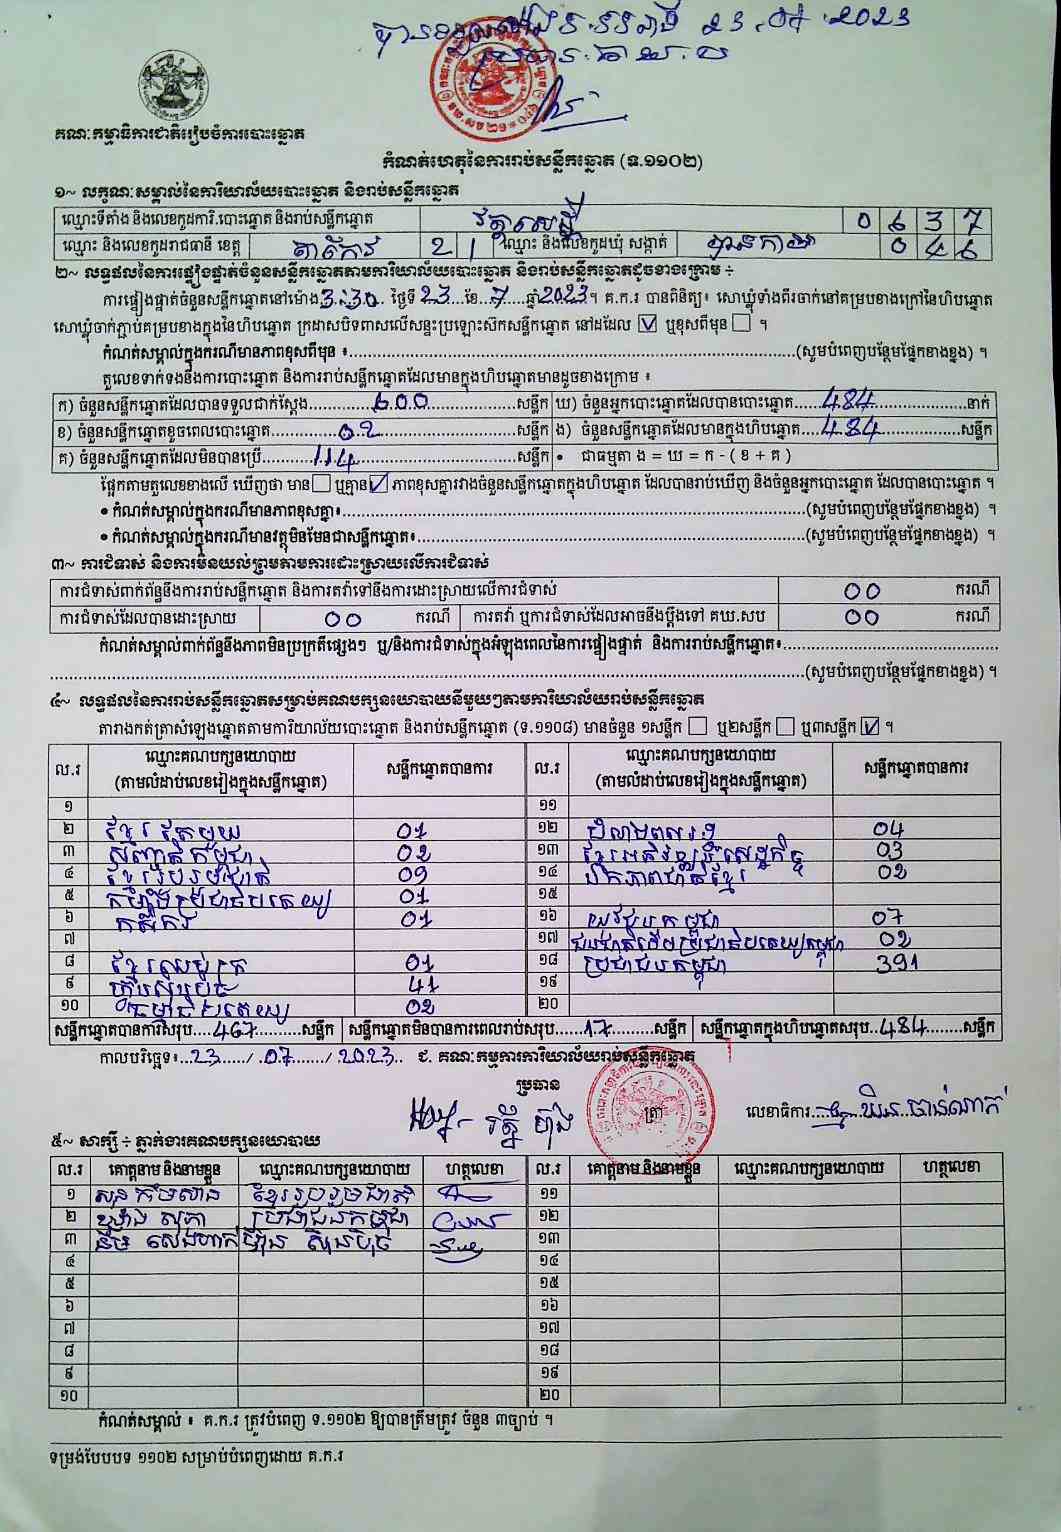 23.07.2023
គណៈកម្មាធិការជាតិរៀបចំការបោះឆ្នោត
កំណត់ហេតុនៃការរាប់សន្លឹកឆ្នោត (ទ.១១០២)
១~ លក្ខណៈសម្គាល់នៃការិយាល័យបោះឆ្នោត និងរាប់សន្លឹកឆ្នោត
ឈ្មោះទីតាំង និងលេខកូដការិ.បោះឆ្នោត និងរាប់សន្លឹកឆ្នោត 0 6 3 7
ឈ្មោះ និងលេខកូដរាជធានី ខេត្ត តាកែវ 2 1 ឈ្មោះ និងលេខកូដឃុំ សង្កាត់ 0 4 6
២~ លទ្ធផលនៃការផ្ទៀងផ្ទាត់ចំនួនសន្លឹកឆ្នោតតាមការិយាល័យបោះឆ្នោត និងរាប់សន្លឹកឆ្នោតដូចខាងក្រោម ÷
ការផ្ទៀងផ្ទាត់ចំនួនសន្លឹកឆ្នោតនៅម៉ោង 3:30 ថ្ងៃទី 23 ខែ 7 ឆ្នាំ 2023 ។ គ.ក.រ បានពិនិត្យ៖ សោឃ្លុំទាំងពីរចាក់នៅគម្របខាងក្រៅនៃហិបឆ្នោត
សោឃ្លុំចាក់ភ្ជាប់គម្របខាងក្នុងនៃហិបឆ្នោត ក្រដាសបិទពាសលើសន្ទះប្រឡោះស៊កសន្លឹកឆ្នោត នៅដដែល ☑ ឬខុសពីមុន ☐ ។
កំណត់សម្គាល់ក្នុងករណីមានភាពខុសពីមុន ៖ (សូមបំពេញបន្ថែមផ្នែកខាងខ្នង) ។
តួលេខទាក់ទងនឹងការបោះឆ្នោត និងការរាប់សន្លឹកឆ្នោតដែលមានក្នុងហិបឆ្នោតមានដូចខាងក្រោម ៖
ក) ចំនួនសន្លឹកឆ្នោតដែលបានទទួលជាក់ស្តែង 600 សន្លឹក ឃ) ចំនួនអ្នកបោះឆ្នោតដែលបានបោះឆ្នោត 484 នាក់
ខ) ចំនួនសន្លឹកឆ្នោតខូចពេលបោះឆ្នោត 02 សន្លឹក ង) ចំនួនសន្លឹកឆ្នោតដែលមានក្នុងហិបឆ្នោត 484 សន្លឹក
គ) ចំនួនសន្លឹកឆ្នោតដែលមិនបានប្រើ 114 សន្លឹក • ជាធម្មតា ង = ឃ = ក - ( ខ + គ )
ផ្អែកតាមតួលេខខាងលើ ឃើញថា មាន ☐ ឬគ្មាន ☑ ភាពខុសគ្នារវាងចំនួនសន្លឹកឆ្នោតក្នុងហិបឆ្នោត ដែលបានរាប់ឃើញ និងចំនួនអ្នកបោះឆ្នោត ដែលបានបោះឆ្នោត ។
• កំណត់សម្គាល់ក្នុងករណីមានភាពខុសគ្នា៖ (សូមបំពេញបន្ថែមផ្នែកខាងខ្នង) ។
• កំណត់សម្គាល់ក្នុងករណីមានវត្ថុមិនមែនជាសន្លឹកឆ្នោត៖ (សូមបំពេញបន្ថែមផ្នែកខាងខ្នង) ។
៣~ ការជំទាស់ និងការមិនយល់ព្រមតាមការដោះស្រាយលើការជំទាស់
ការជំទាស់ពាក់ព័ន្ធនឹងការរាប់សន្លឹកឆ្នោត និងការតវ៉ាទៅនឹងការដោះស្រាយលើការជំទាស់ 00 ករណី
ការជំទាស់ដែលបានដោះស្រាយ 00 ករណី ការតវ៉ា ឬការជំទាស់ដែលអាចនឹងប្តឹងទៅ គឃ.សប 00 ករណី
កំណត់សម្គាល់ពាក់ព័ន្ធនឹងភាពមិនប្រក្រតីផ្សេងៗ ឬ/និងការជំទាស់ក្នុងអំឡុងពេលនៃការផ្ទៀងផ្ទាត់ និងការរាប់សន្លឹកឆ្នោត៖
(សូមបំពេញបន្ថែមផ្នែកខាងខ្នង) ។
៤~ លទ្ធផលនៃការរាប់សន្លឹកឆ្នោតសម្រាប់គណបក្សនយោបាយនីមួយៗតាមការិយាល័យរាប់សន្លឹកឆ្នោត
តារាងកត់ត្រាសំឡេងឆ្នោតតាមការិយាល័យបោះឆ្នោត និងរាប់សន្លឹកឆ្នោត (ទ.១១០៨) មានចំនួន ១សន្លឹក ☐ ឬ២សន្លឹក ☐ ឬ៣សន្លឹក ☑ ។
ល.រ ឈ្មោះគណបក្សនយោបាយ (តាមលំដាប់លេខរៀងក្នុងសន្លឹកឆ្នោត) សន្លឹកឆ្នោតបានការ ល.រ ឈ្មោះគណបក្សនយោបាយ (តាមលំដាប់លេខរៀងក្នុងសន្លឹកឆ្នោត) សន្លឹកឆ្នោតបានការ
១ ១១
២ ខ្មែរតែមួយ 01 ១២ 04
៣ សញ្ជាតិកម្ពុជា 02 ១៣ ខ្មែរអភិវឌ្ឍន៍សេដ្ឋកិច្ច 03
៤ ខ្មែររួបរួមជាតិ 09 ១៤ ឯកភាពជាតិខ្មែរ 02
៥ កម្លាំងប្រជាធិបតេយ្យ 01 ១៥
៦ កសិករ 01 ១៦ យុវជនកម្ពុជា 07
៧ ១៧ ជនជាតិដើមប្រជាធិបតេយ្យកម្ពុជា 02
៨ ខ្មែរឈប់ក្រ 01 ១៨ ប្រជាជនកម្ពុជា 391
៩ ហ៊្វុនស៊ិនប៉ិច 41 ១៩
១០ 02 ២០
សន្លឹកឆ្នោតបានការសរុប 467 សន្លឹក សន្លឹកឆ្នោតមិនបានការពេលរាប់សរុប 17 សន្លឹក សន្លឹកឆ្នោតក្នុងហិបឆ្នោតសរុប 484 សន្លឹក
កាលបរិច្ឆេទ៖ 23 / 07 / 2023 ជ. គណៈកម្មការការិយាល័យរាប់សន្លឹកឆ្នោត
ប្រធាន
ត្រា
លេខាធិការ
៥~ សាក្សី ÷ ភ្នាក់ងារគណបក្សនយោបាយ
ល.រ គោត្តនាម និងនាមខ្លួន ឈ្មោះគណបក្សនយោបាយ ហត្ថលេខា ល.រ គោត្តនាម និងនាមខ្លួន ឈ្មោះគណបក្សនយោបាយ ហត្ថលេខា
១ ខ្មែររួបរួមជាតិ ១១
២ ប្រជាជនកម្ពុជា ១២
៣ ហ៊្វុនស៊ិនប៉ិច ១៣
៤ ១៤
៥ ១៥
៦ ១៦
៧ ១៧
៨ ១៨
៩ ១៩
១០ ២០
កំណត់សម្គាល់ ៖ គ.ក.រ ត្រូវបំពេញ ទ.១១០២ ឱ្យបានត្រឹមត្រូវ ចំនួន ៣ច្បាប់ ។
ទម្រង់បែបបទ ១១០២ សម្រាប់បំពេញដោយ គ.ក.រ